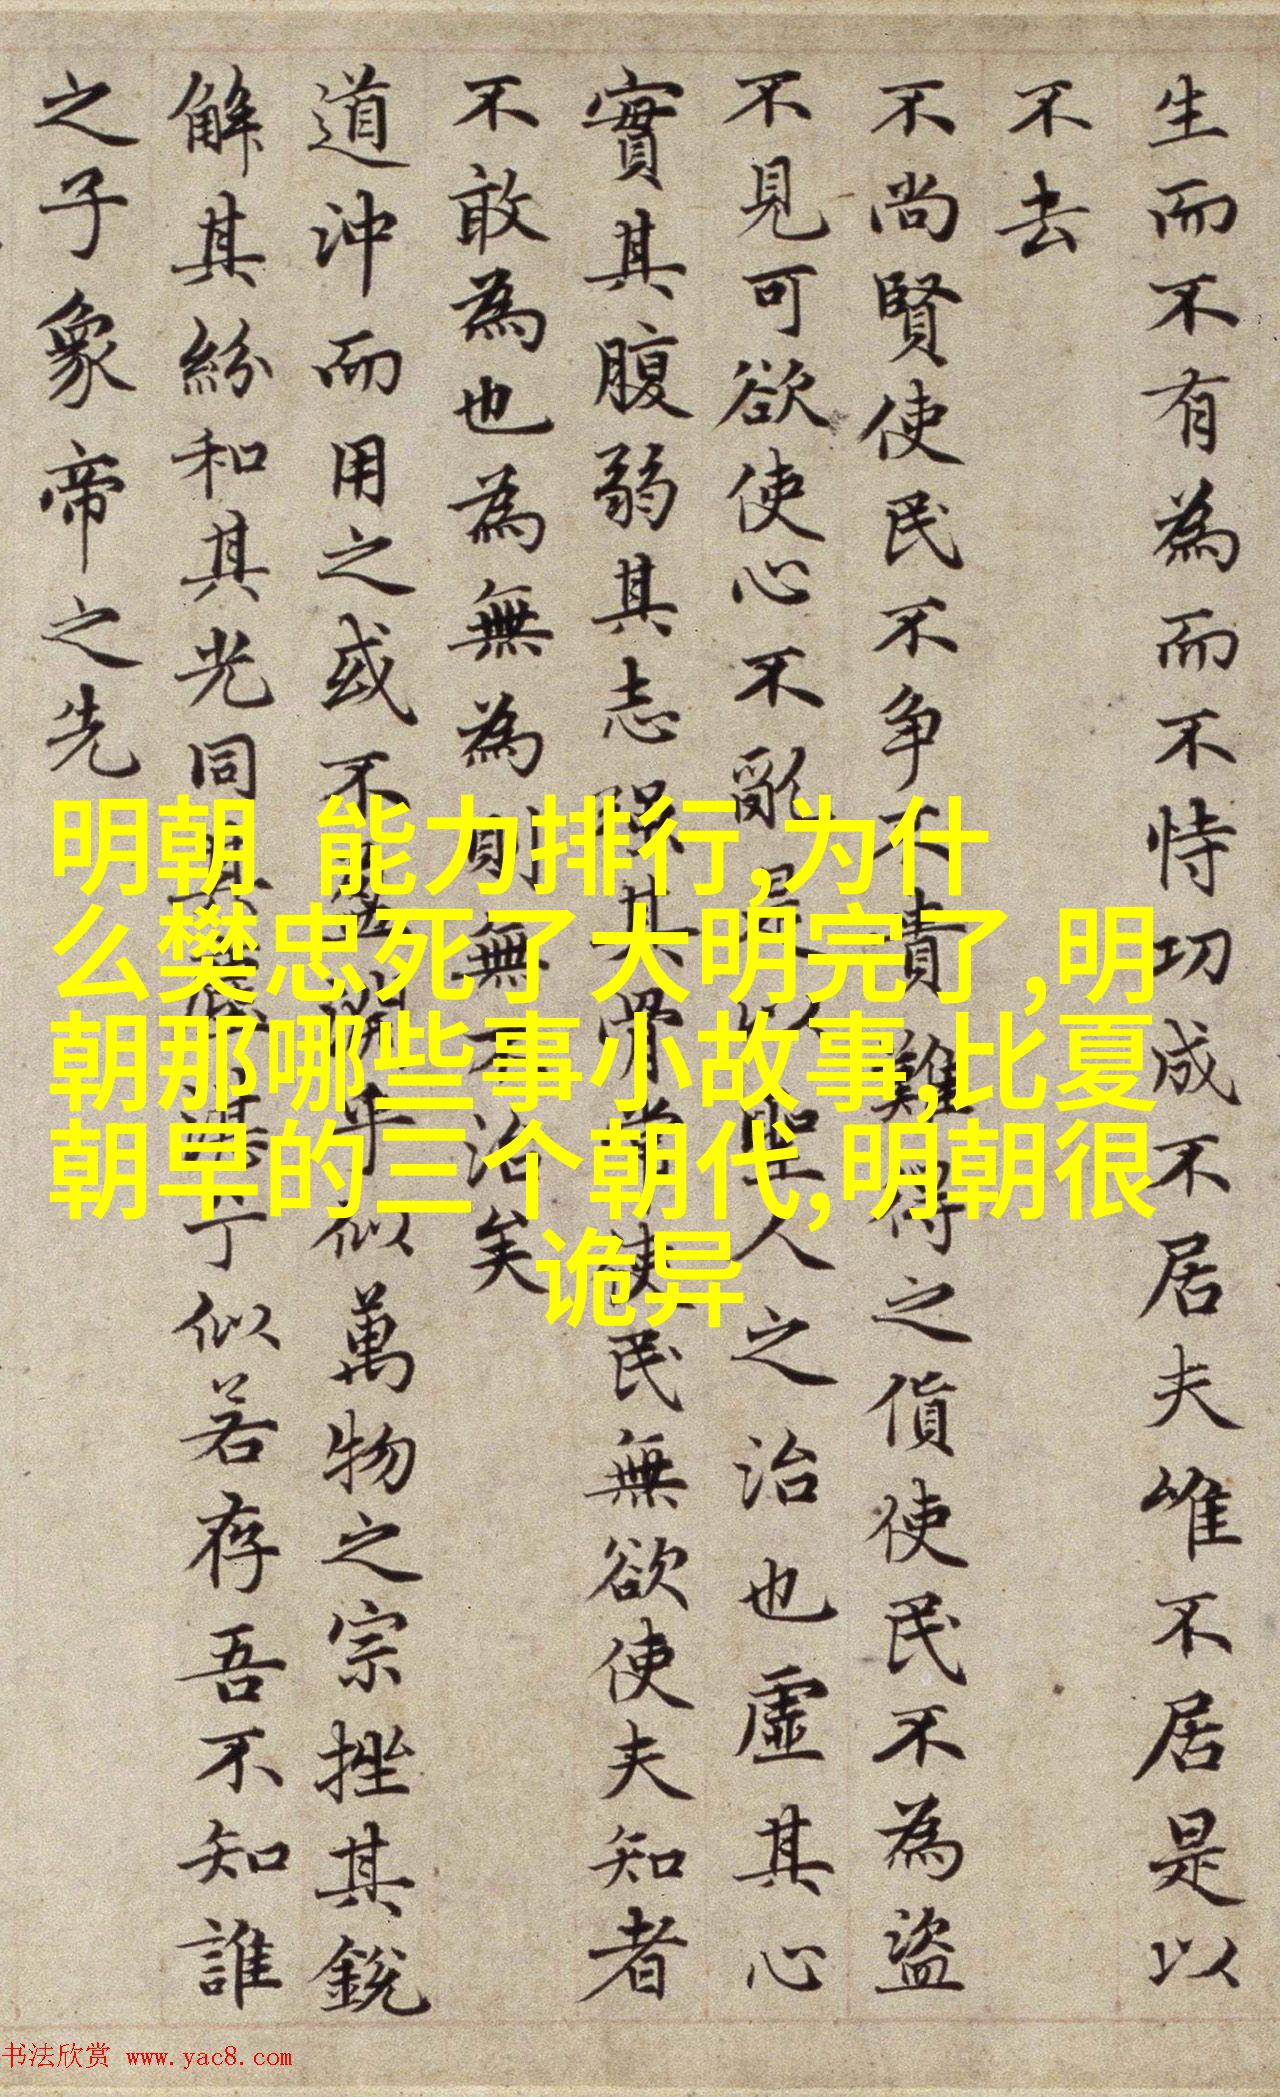 生而不有為而不恃功成不居夫唯不居是以
不去
不尚賢使民不争不貴難得之貨使民不為盜
不見可欲使心不亂是以聖人之治也虛其心
實其腹弱其志强其骨常使民無欲使夫知者
不敢為也為無為則無不治矣
道沖而用之或不盈淵乎似萬物之宗挫其銳
解其紛和其光同其塵湛兮似若存吾不知誰
之子象帝之先
明朝 能力排行,为什
么樊忠死了大明完了,明
朝那哪些事小故事,比夏
朝早的三个朝代,明朝很
诡异
书法欣赏 www.yac8.com